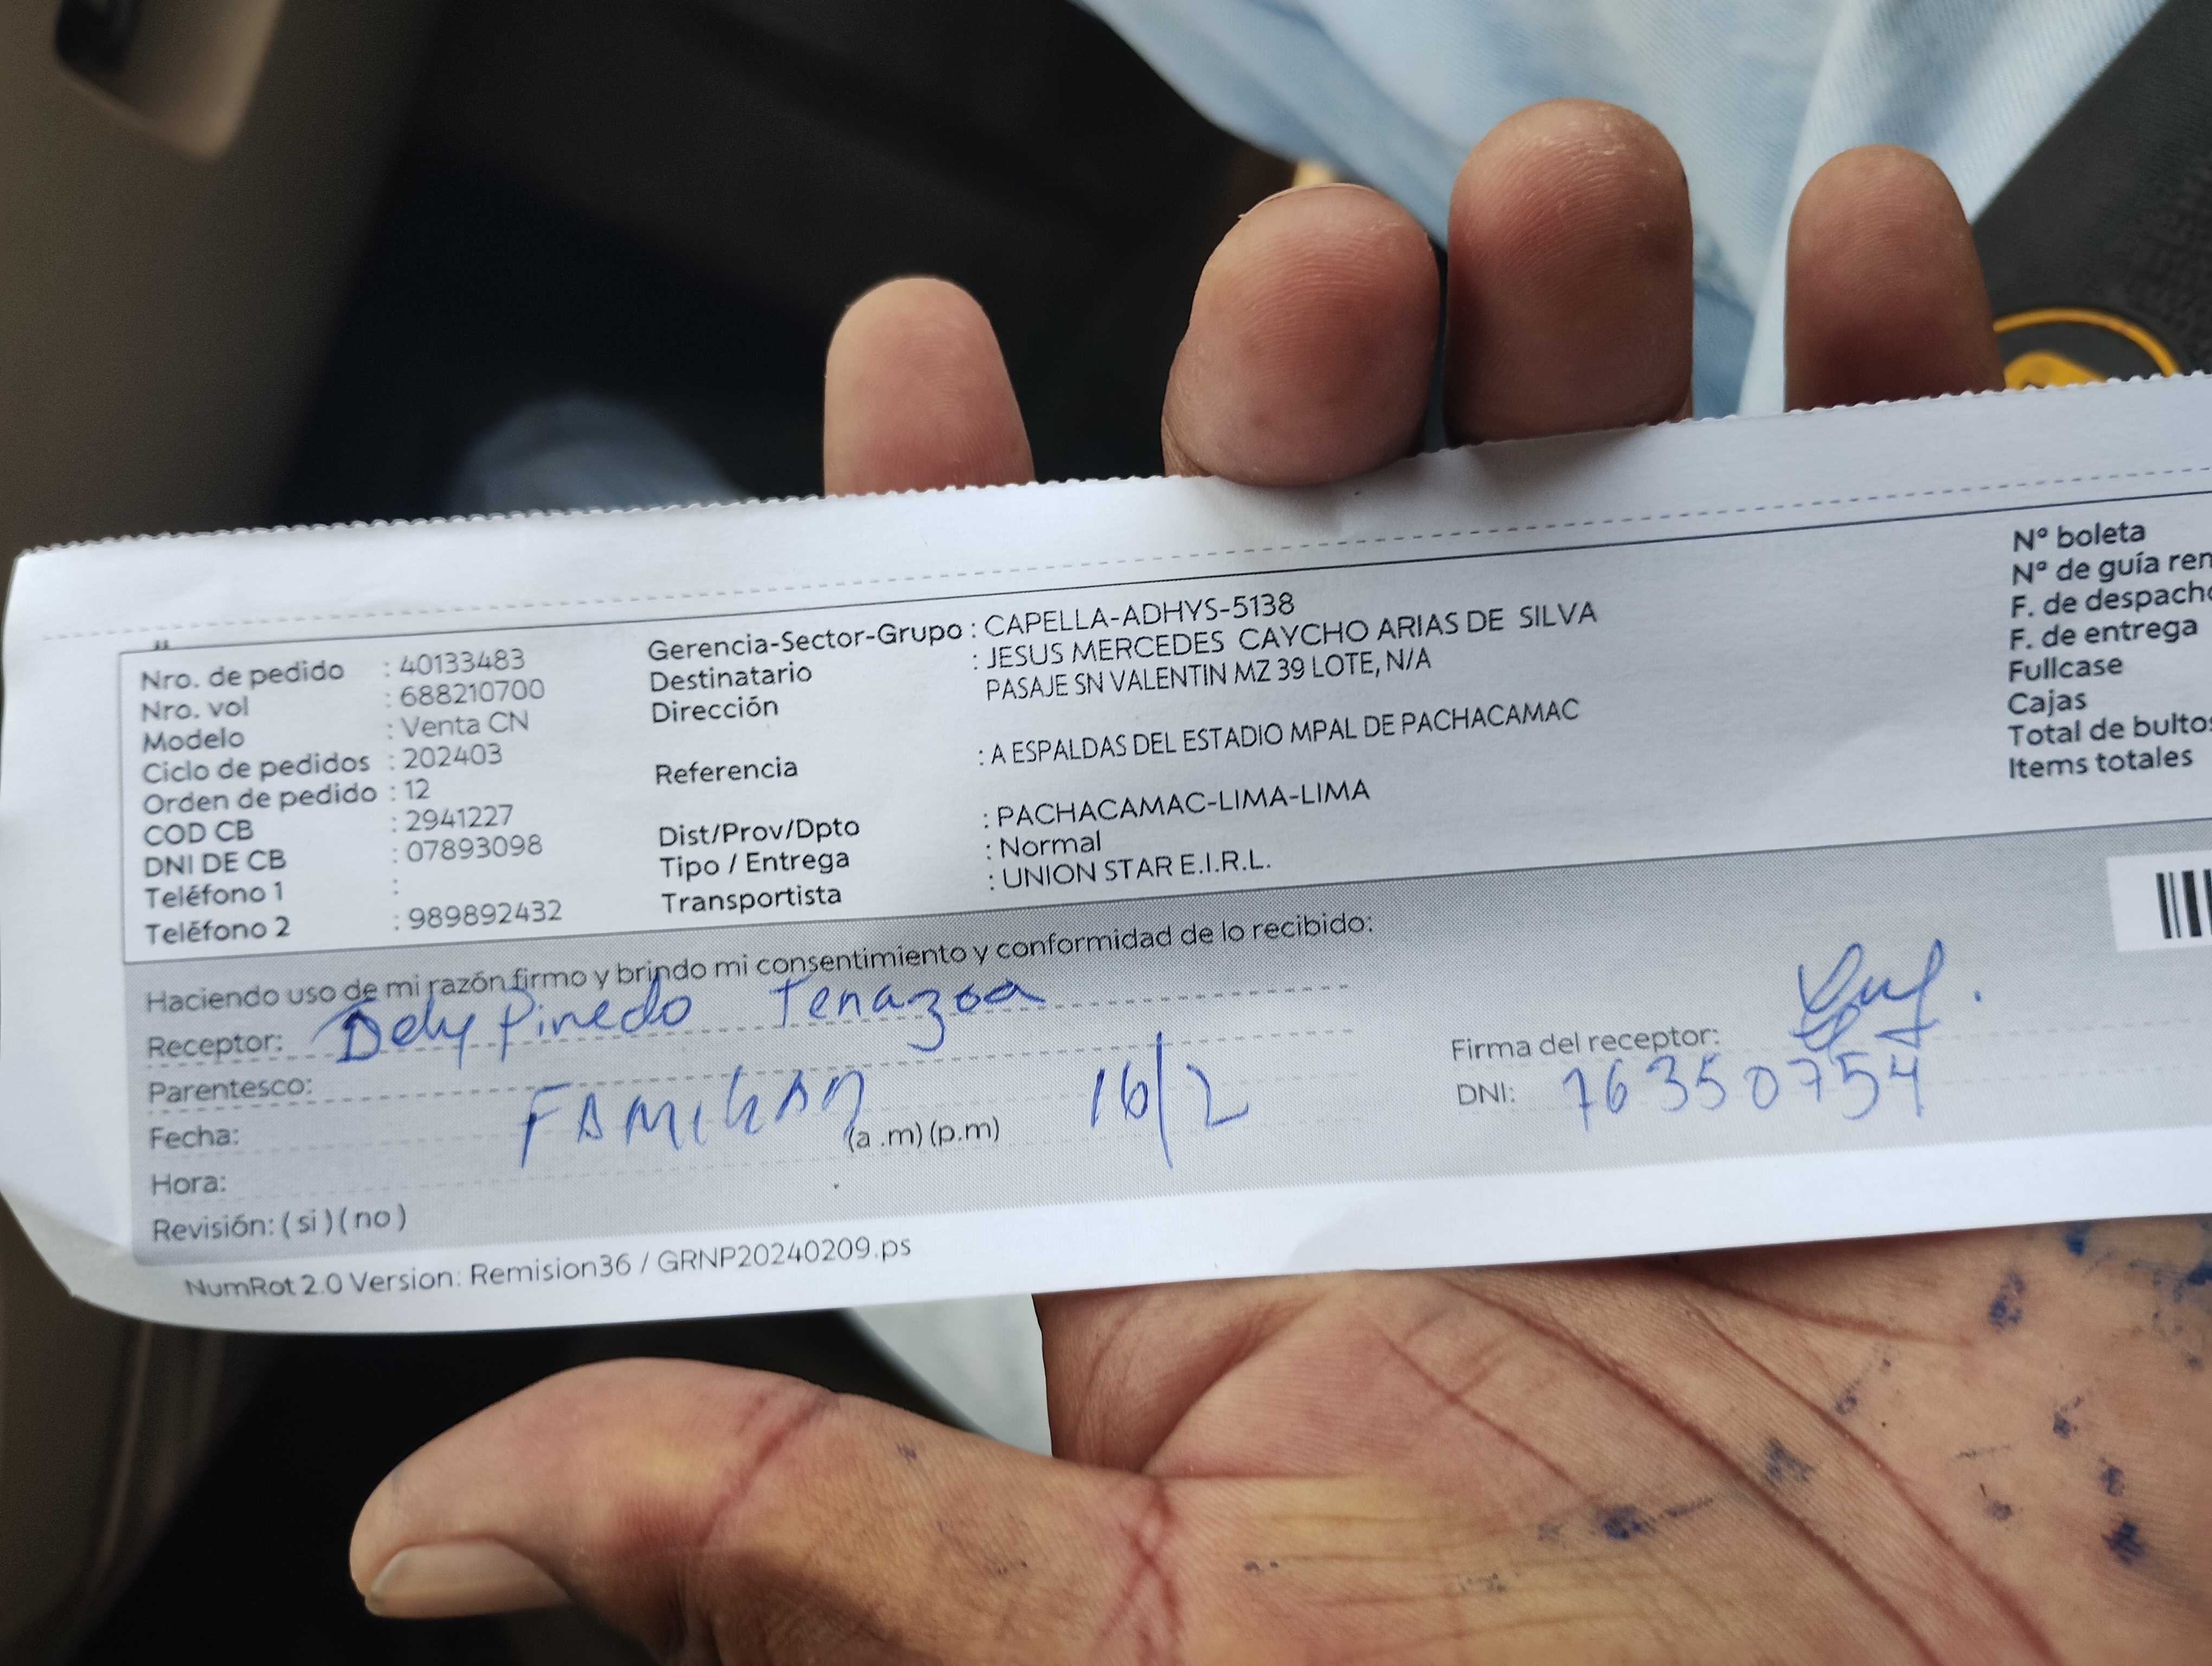 Nro. de pedido : 40133483
Nro. vol : 688210700
Modelo : Venta CN
Ciclo de pedidos : 202403
Orden de pedido : 12
COD CB : 2941227
DNI DE CB : 07893098
Teléfono 1 :
Teléfono 2 : 989892432
Gerencia-Sector-Grupo : CAPELLA-ADHYS-5138
Destinatario : JESUS MERCEDES CAYCHO ARIAS DE SILVA
Dirección PASAJE SN VALENTIN MZ 39 LOTE, N/A
Referencia : A ESPALDAS DEL ESTADIO MPAL DE PACHACAMAC
Dist/Prov/Dpto : PACHACAMAC-LIMA-LIMA
Tipo / Entrega : Normal
Transportista : UNION STAR E.I.R.L.
N° boleta
N° de guía
F. de despacho
F. de entrega
Fullcase
Cajas
Total de bultos
Items totales
Haciendo uso de mi razón firmo y brindo mi consentimiento y conformidad de lo recibido:
Receptor: Dely Pinedo Tenazoa
Parentesco: FAMILIAR
Fecha: 16/2
Hora: (a .m) (p.m)
Revisión: ( si ) ( no )
Firma del receptor:
DNI: 76350754
NumRot 2.0 Version: Remision36 / GRNP20240209.ps